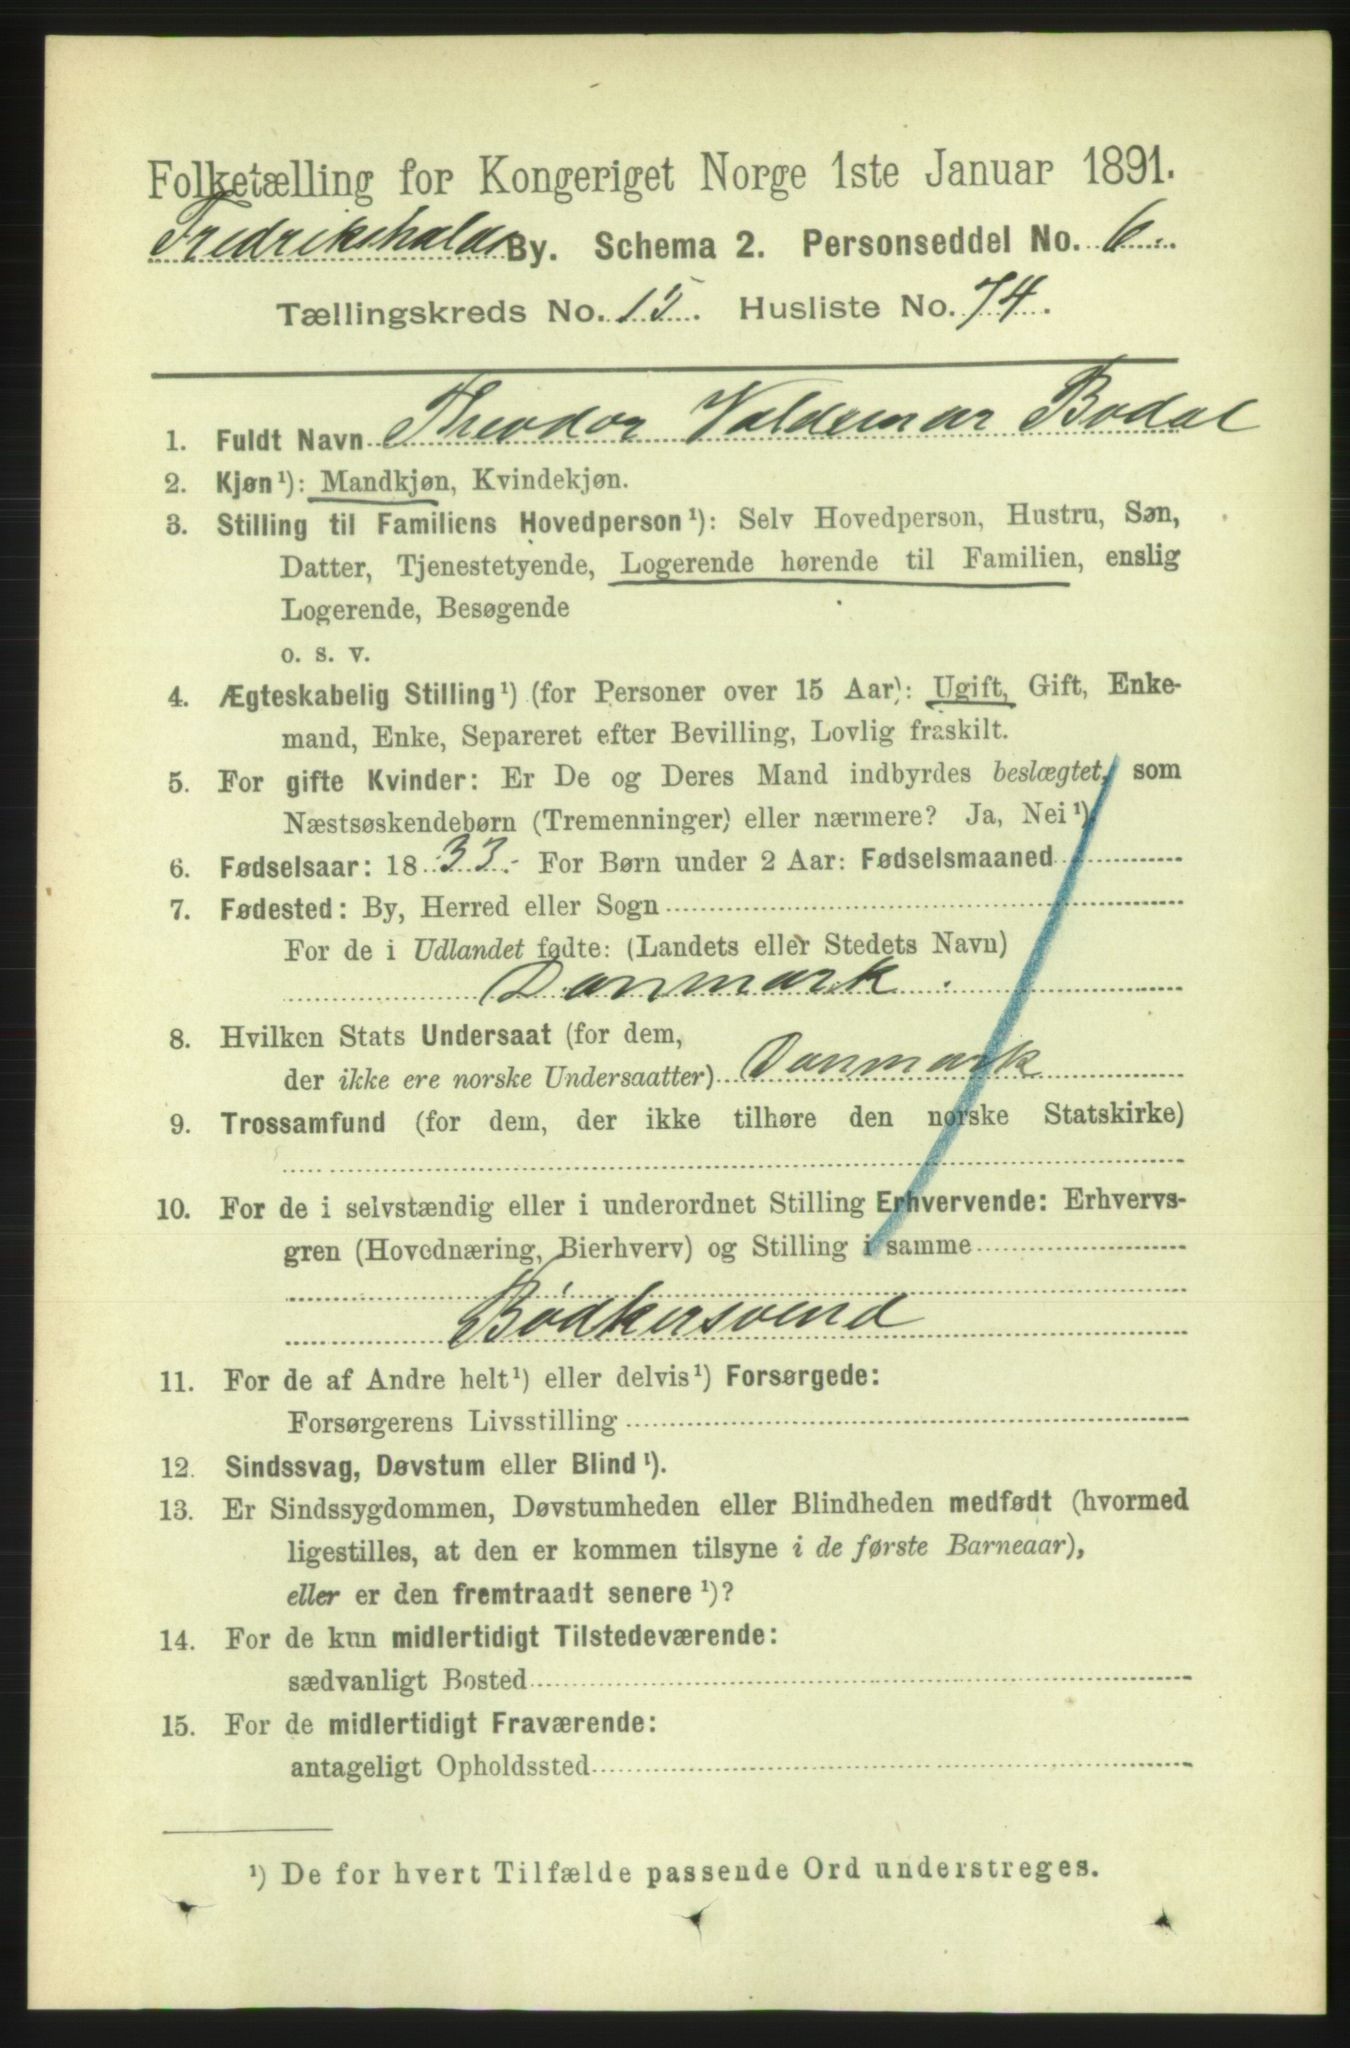 Folketælling for Kongeriget Norge 1ste Januar 1891.
Fredrikshalds By. Schema 2. Personseddel No. 6.
Tællingskreds No. 15. Husliste No. 74.
1. Fuldt Navn Theodor Valdemar Bodal
2. Kjøn¹): Mandkjøn, Kvindekjøn.
3. Stilling til Familiens Hovedperson¹): Selv Hovedperson, Hustru, Søn,
Datter, Tjenestetyende, Logerende hørende til Familien, enslig
Logerende, Besøgende
o. s. v.
4. Ægteskabelig Stilling¹) (for Personer over 15 Aar): Ugift, Gift, Enke-
mand, Enke, Separeret efter Bevilling, Lovlig fraskilt.
5. For gifte Kvinder: Er De og Deres Mand indbyrdes beslægtet, som
Næstsøskendebørn (Tremenninger) eller nærmere? Ja, Nei¹).
6. Fødselsaar: 1833. For Børn under 2 Aar: Fødselsmaaned
7. Fødested: By, Herred eller Sogn
For de i Udlandet fødte: (Landets eller Stedets Navn)
Danmark.
8. Hvilken Stats Undersaat (for dem,
der ikke ere norske Undersaatter) Danmark
9. Trossamfund (for dem, der ikke tilhøre den norske Statskirke)
10. For de i selvstændig eller i underordnet Stilling Erhvervende: Erhvervs-
gren (Hovednæring, Bierhverv) og Stilling i samme
Bødkersvend
11. For de af Andre helt¹) eller delvis¹) Forsørgede:
Forsørgerens Livsstilling
12. Sindssvag, Døvstum eller Blind¹).
13. Er Sindssygdommen, Døvstumheden eller Blindheden medfødt (hvormed
ligestilles, at den er kommen tilsyne i de første Barneaar),
eller er den fremtraadt senere¹)?
14. For de kun midlertidigt Tilstedeværende:
sædvanligt Bosted
15. For de midlertidigt Fraværende:
antageligt Opholdssted
¹) De for hvert Tilfælde passende Ord understreges.